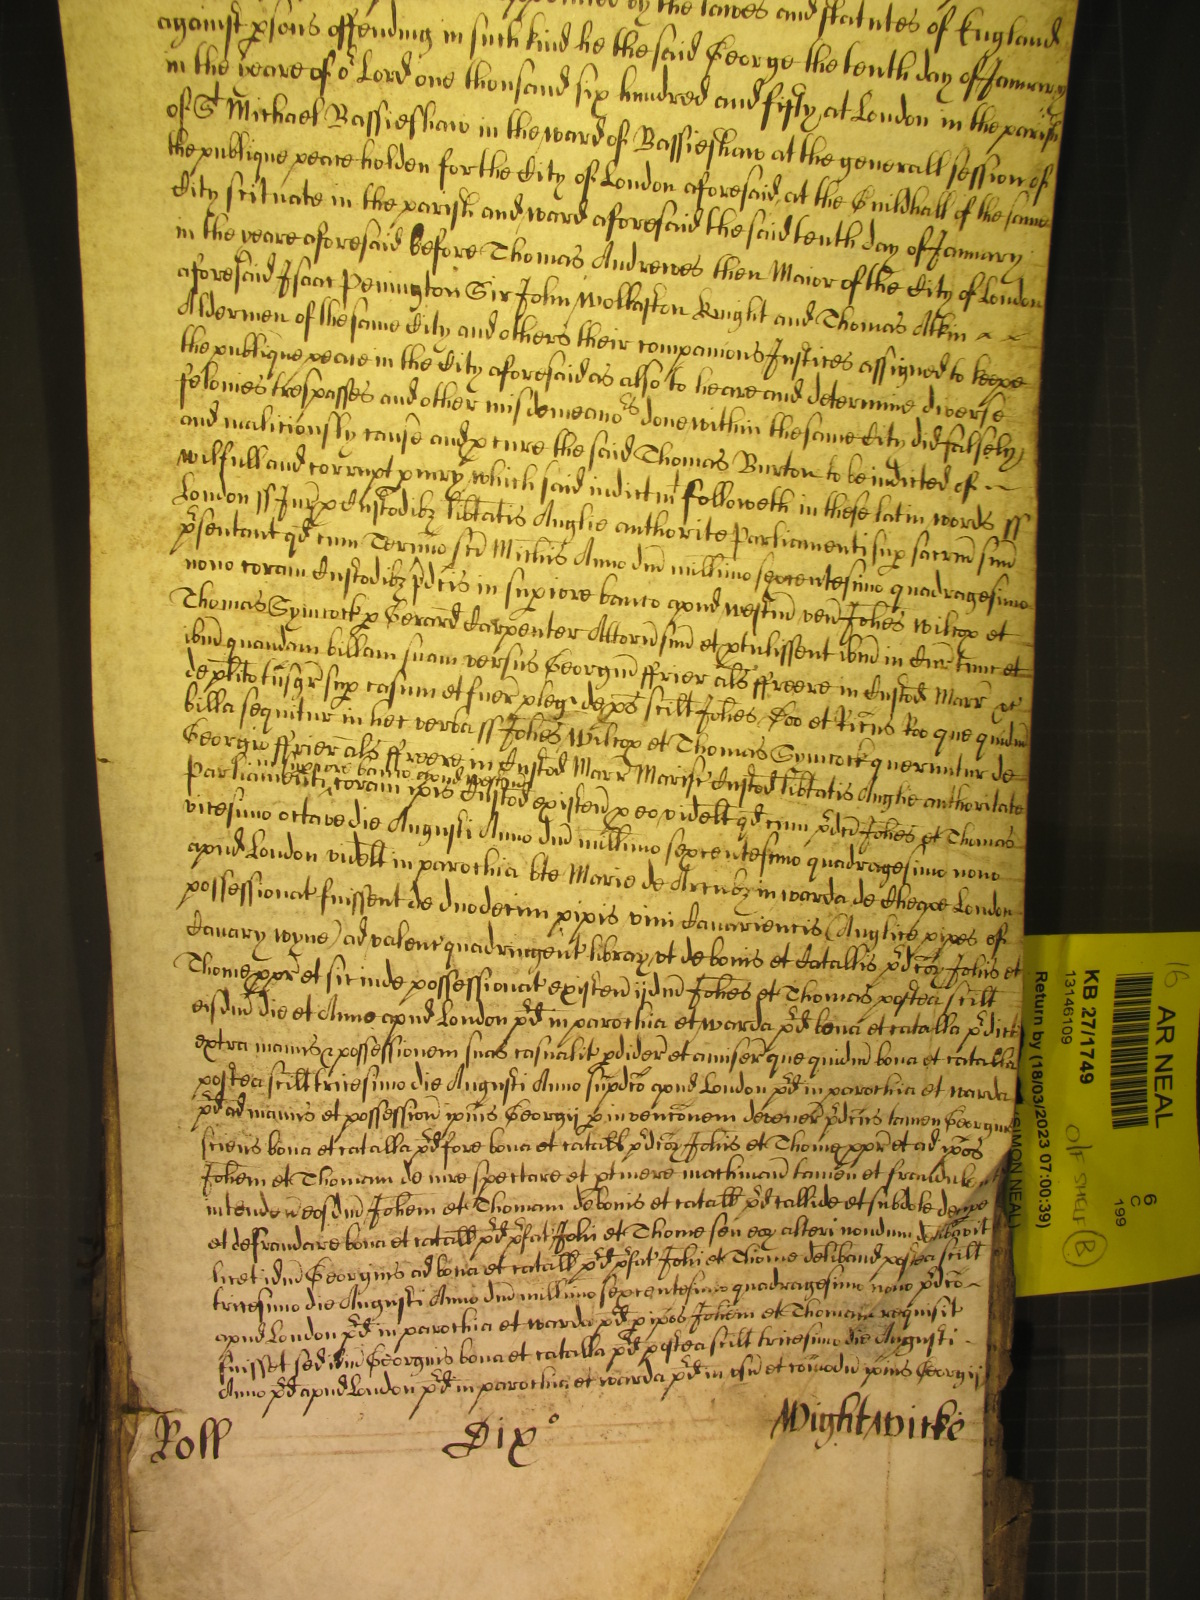 by the lawes and statutes of England
against psons offending in such kind he the said George the tenth day of January
in the yeare of or Lord one thousand six hundred and fifty at London in the parish
of St Michael Bassieshaw in the ward of Bassieshaw at the generall session of
the publique peace holden for the City of London aforesaid at the Guildhall of the same
City scituate in the parish and ward aforesaid the said tenth day of January
in the yeare aforesaid before Thomas Andrewes then Maior of the City of London
aforesaid Isaac Penington Sir John Wollaston knight and Thomas Atkin
Aldermen of the same City and others their companions Justices assigned to keepe
the publique peace in the City aforesaid as also to heare and determine diverse
felonies trespasses and other misdemeanors done within the same City did falsely
and maliciously cause and pcure the said Thomas Burton to be indicted of
wilfull and corrupt piury which said indictmt followeth in these latin words ss
London ss Jur p Custodibz libtatis Anglie authoritate Parliamenti sup sacrm suu
psentant qd cum Termino sci Michis Anno dni millimo sexcentesimo quadragesimo
nono coram Custodibz pdcis in supiore banco apud Westm ven Johes Wilcox et
Thomas Symcock p Gerard Carpenter Attorn suu et ptulissent ibm in Cur tunc et
ibm quandam billam suam versus Georgiu ffrier als ffreere in Custod Marr &c
de plito tnsgr sup casum et fuer pleg de ps scilt Johes Doo et Ricus Roo que quidm
billa sequitur in hec verba ss Johes Wilcox et Thomas Symcock queruntur de
Georgio ffrier als ffreere in Custod Marr Marisc Custod libtatis Anglie authoritate
in supiore banco apud Westm
Parliamenti coram ipis Custod existen p eo videlt qd cum pdci Johes et Thomas
vicesimo octavo die Augusti Anno dni millimo sexcentesimo quadragesimo nono
apud London videlt in parochia bte Marie de Arcubz in warda de Cheape London
possessionat fuissent de duodecim pipis vini Canariencis (Anglice pipes of
Canary wyne) ad valenc quadringent librar ut de bonis et Catallis pdcor Johis et
Thome ppr et sic inde possessionat existen ijdm Johes et Thomas postea scilt
eisdm die et Anno apud London pd in parochia et warda pd bona et catalla pdict
extra manus & possessionem suas casualit pdider et amiser que quidm bona et catalla
postea scilt tricesimo die Augusti Anno supdco apud London pd in parochia et warda
pd ad manus et possession ipius Georgij p invenconem devener pdcus tamen Georgius
sciens bona et catalla pd fore bona et catall pdcor Johis et Thome ppr et ad ipos
Johem et Thomam de iure spectare et ptinere machinans tamen et fraudulent
intenden eosdm Johem et Thomam de bonis et catall pd callide et subdole decipe
et defraudare bona et catall pd pfat Johi et Thome seu eor alteri nondum delibavit
licet idm Georgius ad bona et catall pd pfat Johi et Thome deliband postea scilt
tricesimo die Augusti Anno dni millimo sexcentesimo quadragesimo nono pdco
apud London pd in parochia et warda pd p ipos Johem et Thomam requisit
fuisset sed idm Georgius bona et catalla pd postea scilt tricesimo die Augusti
Anno pd apud London pd in parochia et warda pd in usu et comodu ipius Georgij
Roll Dixo Wightwicke
16
AR NEAL
KB 27/1749
13146109
Return by (18/03/2023 07:00:39)
(SIMON NEAL)
6
C
199
O/F SHELF
B